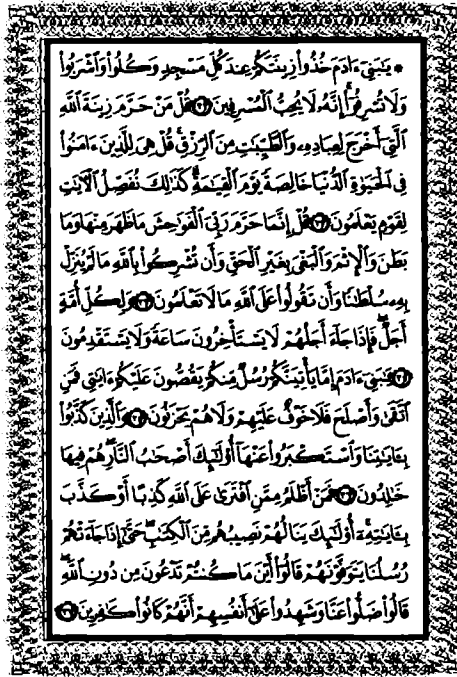 * يَٰبَنِىٓ ءَادَمَ خُذُوا۟ زِينَتَكُمْ عِندَ كُلِّ مَسْجِدٍ وَكُلُوا۟ وَٱشْرَبُوا۟
وَلَا تُسْرِفُوٓا۟ إِنَّهُۥ لَا يُحِبُّ ٱلْمُسْرِفِينَ ٣١ قُلْ مَنْ حَرَّمَ زِينَةَ ٱللَّهِ
ٱلَّتِىٓ أَخْرَجَ لِعِبَادِهِۦ وَٱلطَّيِّبَٰتِ مِنَ ٱلرِّزْقِ قُلْ هِىَ لِلَّذِينَ ءَامَنُوا۟
فِى ٱلْحَيَوٰةِ ٱلدُّنْيَا خَالِصَةً يَوْمَ ٱلْقِيَٰمَةِ كَذَٰلِكَ نُفَصِّلُ ٱلْءَايَٰتِ
لِقَوْمٍ يَعْلَمُونَ ٣٢ قُلْ إِنَّمَا حَرَّمَ رَبِّىَ ٱلْفَوَٰحِشَ مَا ظَهَرَ مِنْهَا وَمَا
بَطَنَ وَٱلْإِثْمَ وَٱلْبَغْىَ بِغَيْرِ ٱلْحَقِّ وَأَن تُشْرِكُوا۟ بِٱللَّهِ مَا لَمْ يُنَزِّلْ
بِهِۦ سُلْطَٰنًا وَأَن تَقُولُوا۟ عَلَى ٱللَّهِ مَا لَا تَعْلَمُونَ ٣٣ وَلِكُلِّ أُمَّةٍ
أَجَلٌ فَإِذَا جَآءَ أَجَلُهُمْ لَا يَسْتَأْخِرُونَ سَاعَةً وَلَا يَسْتَقْدِمُونَ
٣٤ يَٰبَنِىٓ ءَادَمَ إِمَّا يَأْتِيَنَّكُمْ رُسُلٌ مِّنكُمْ يَقُصُّونَ عَلَيْكُمْ ءَايَٰتِى فَمَنِ
ٱتَّقَىٰ وَأَصْلَحَ فَلَا خَوْفٌ عَلَيْهِمْ وَلَا هُمْ يَحْزَنُونَ ٣٥ وَٱلَّذِينَ كَذَّبُوا۟
بِـَٔايَٰتِنَا وَٱسْتَكْبَرُوا۟ عَنْهَآ أُو۟لَٰٓئِكَ أَصْحَٰبُ ٱلنَّارِ هُمْ فِيهَا
خَٰلِدُونَ ٣٦ فَمَنْ أَظْلَمُ مِمَّنِ ٱفْتَرَىٰ عَلَى ٱللَّهِ كَذِبًا أَوْ كَذَّبَ
بِـَٔايَٰتِهِۦٓ أُو۟لَٰٓئِكَ يَنَالُهُمْ نَصِيبُهُم مِّنَ ٱلْكِتَٰبِ حَتَّىٰٓ إِذَا جَآءَتْهُمْ
رُسُلُنَا يَتَوَفَّوْنَهُمْ قَالُوٓا۟ أَيْنَ مَا كُنتُمْ تَدْعُونَ مِن دُونِ ٱللَّهِ
قَالُوا۟ ضَلُّوا۟ عَنَّا وَشَهِدُوا۟ عَلَىٰٓ أَنفُسِهِمْ أَنَّهُمْ كَانُوا۟ كَٰفِرِينَ ٣٧